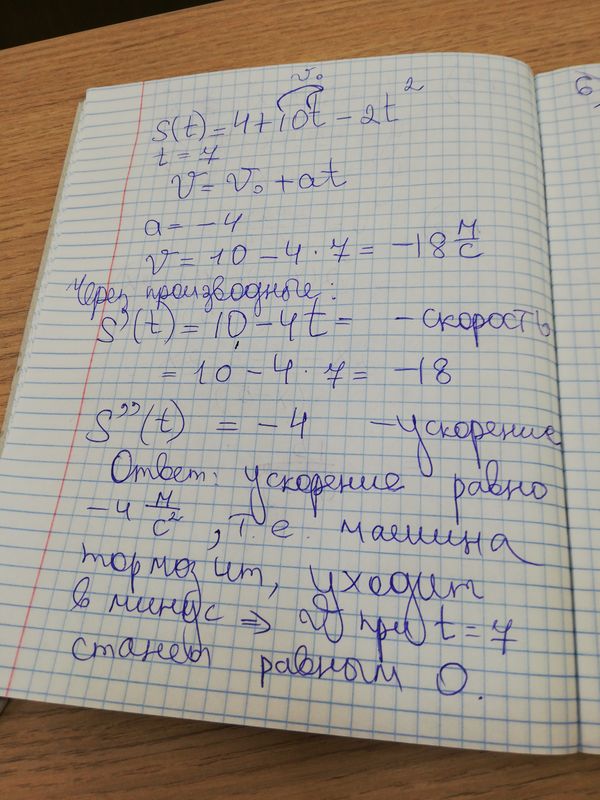 v₀
S(t) = 4 + 10t - 2t²
t = 7
v = v₀ + at
a = -4
v = 10 - 4 · 7 = -18 м/с
Через производные:
S'(t) = 10 - 4t = - скорость
= 10 - 4 · 7 = -18
S''(t) = -4 - ускорение
Ответ: ускорение равно
-4 м/с², т.е. машина
тормозит, уходит
в минус ⇒ v при t = 7
станет равным 0.
6)